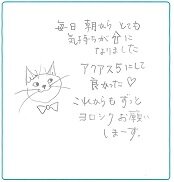 毎日 朝から とても
気持ちが 介に
なりました
アクアス5にして
良かった♡
これからもずっと
ヨロシクお願い
しまーす。